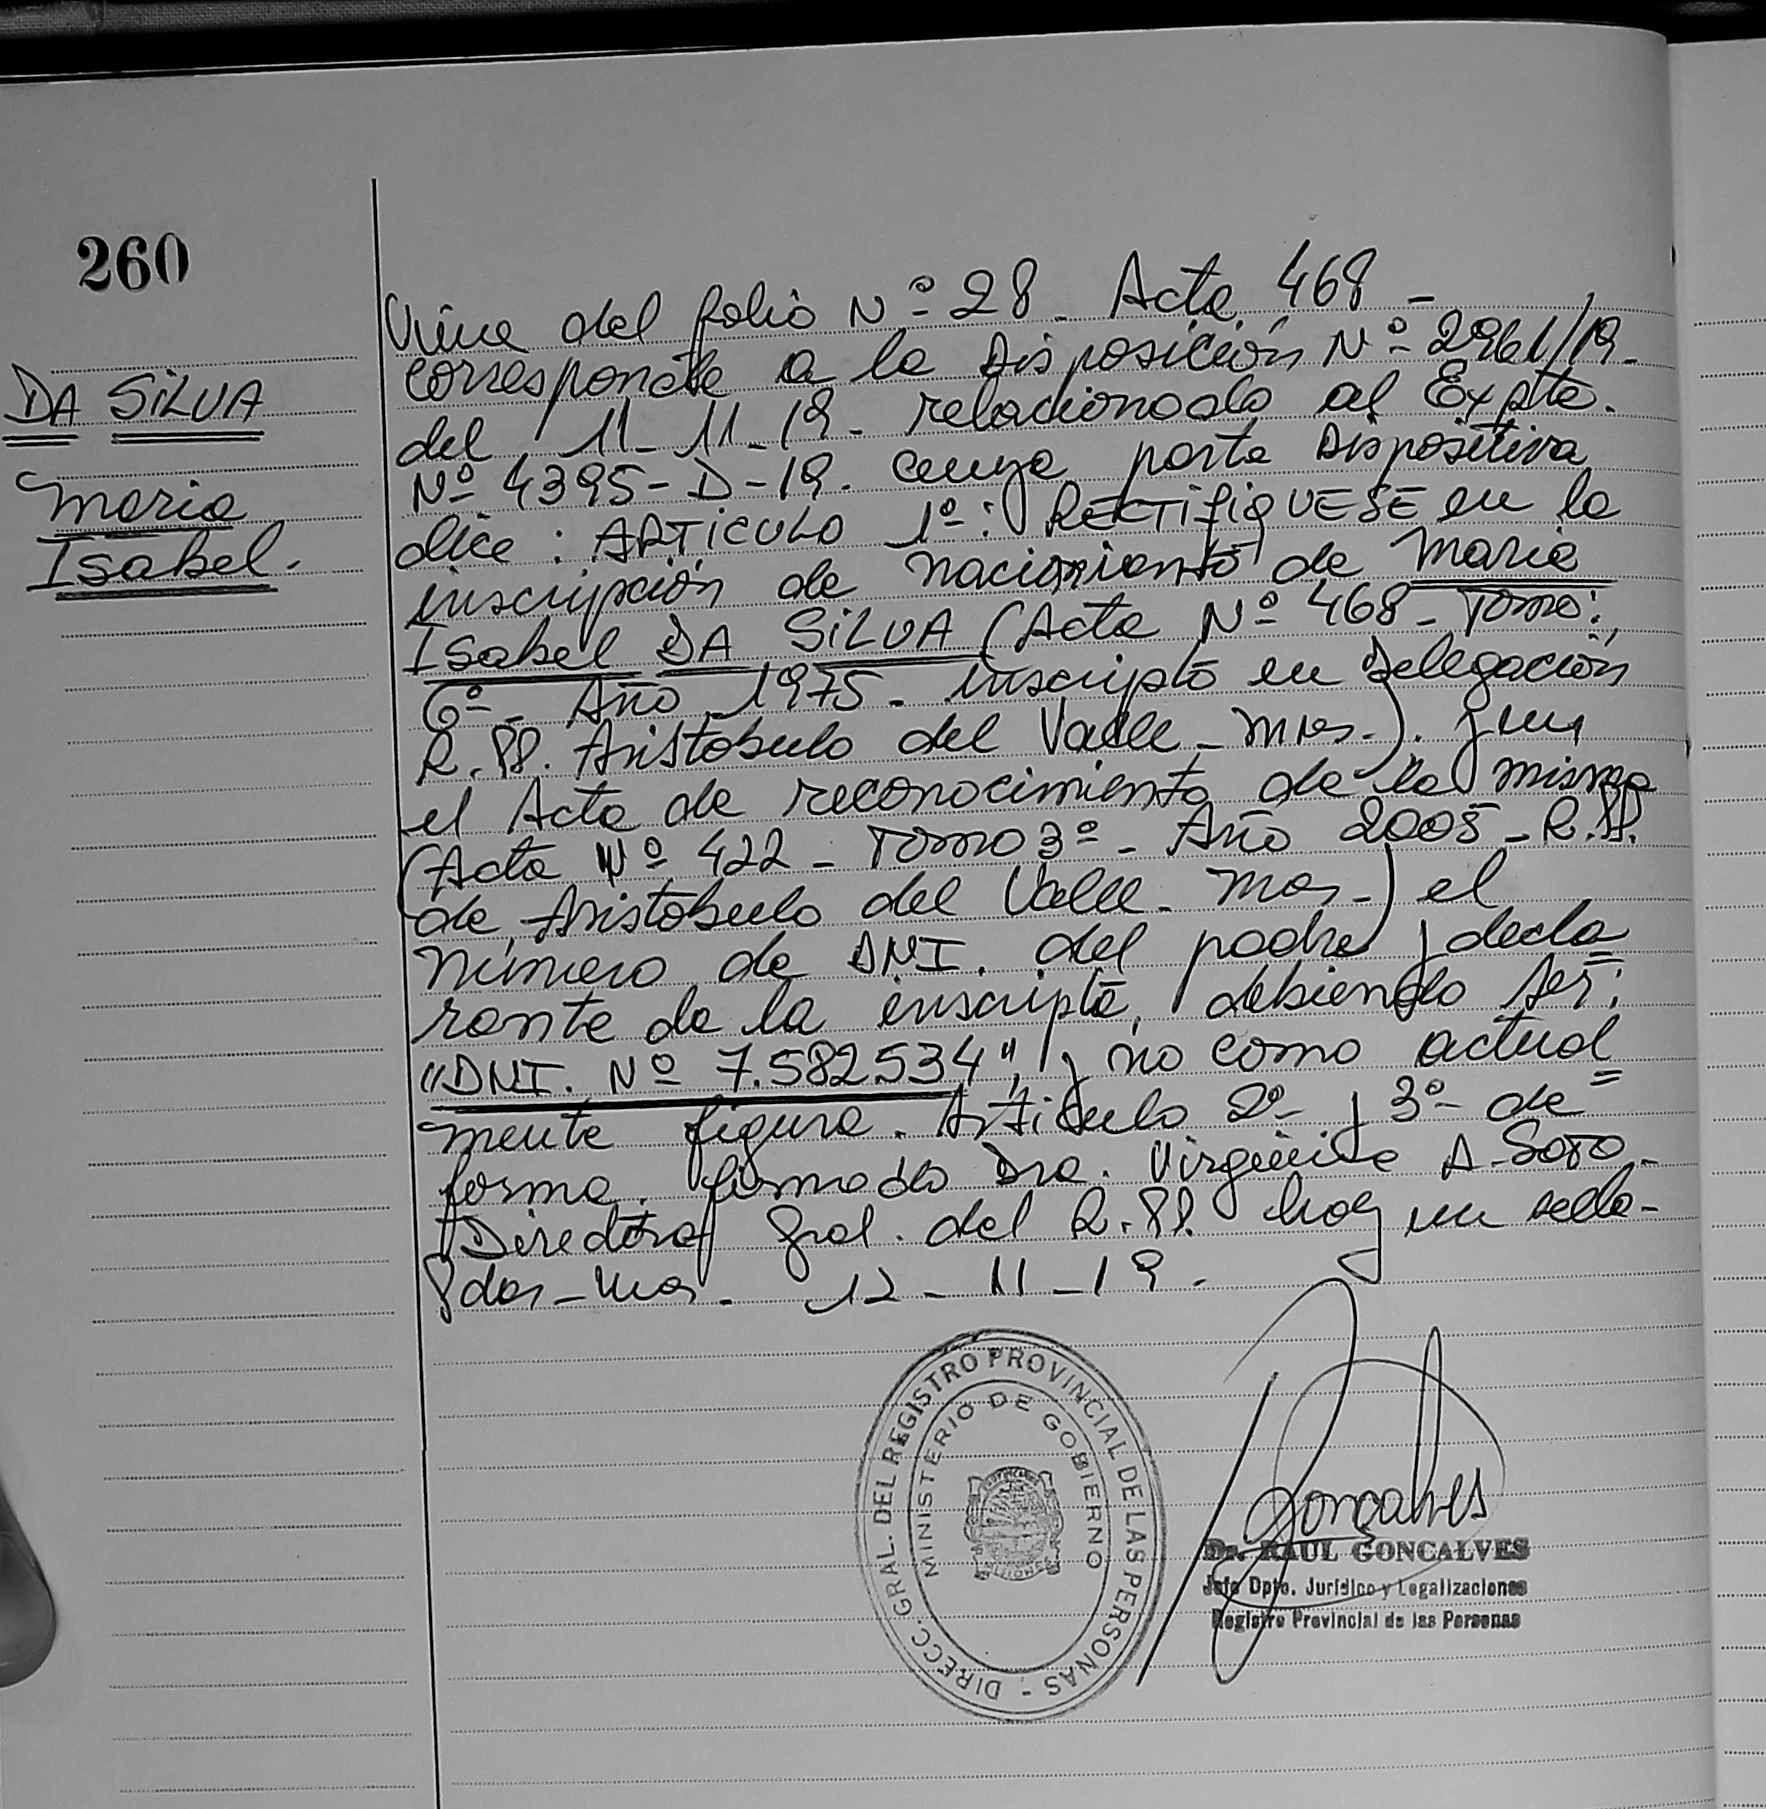 260
DA SILVA
Maria
Isabel.
Viene del folio Nº 28. Acta 468 -
corresponde a la Disposición Nº 2961/19.
del 11-11-19. relacionado al Expte.
Nº 4395-D-19. cuya parte Dispositiva
dice: ARTICULO 1º: RECTIFIQUESE en la
inscripción de nacimiento de Maria
Isabel DA SILVA (Acta Nº 468 - Tomo:
6º - Año 1975 - inscripta en Delegación
R.PP. Aristobulo del Valle - Mnes.). y en
el Acta de reconocimiento de la misma
(Acta Nº 422 - Tomo 3º - Año 2005 - R.PP.
de Aristobulo del Valle - Mnes.) el
número de DNI. del padre y decla
rante de la inscripta, debiendo ser:
"DNI. Nº 7.582.534", y no como actual
mente figura. Artículo 2º y 3º de
forma. firmado Dra. Virginia A. Soto.
Directora Gral. del R.PP. hoy en
12-11-19.
DIRECC. GRAL. DEL REGISTRO PROVINCIAL DE LAS PERSONAS -
MINISTERIO DE GOBIERNO
MISIONES
Gonçalves
Dr. RAUL GONCALVES
Jefe Dpto. Jurídico y Legalizaciones
Registro Provincial de las Personas